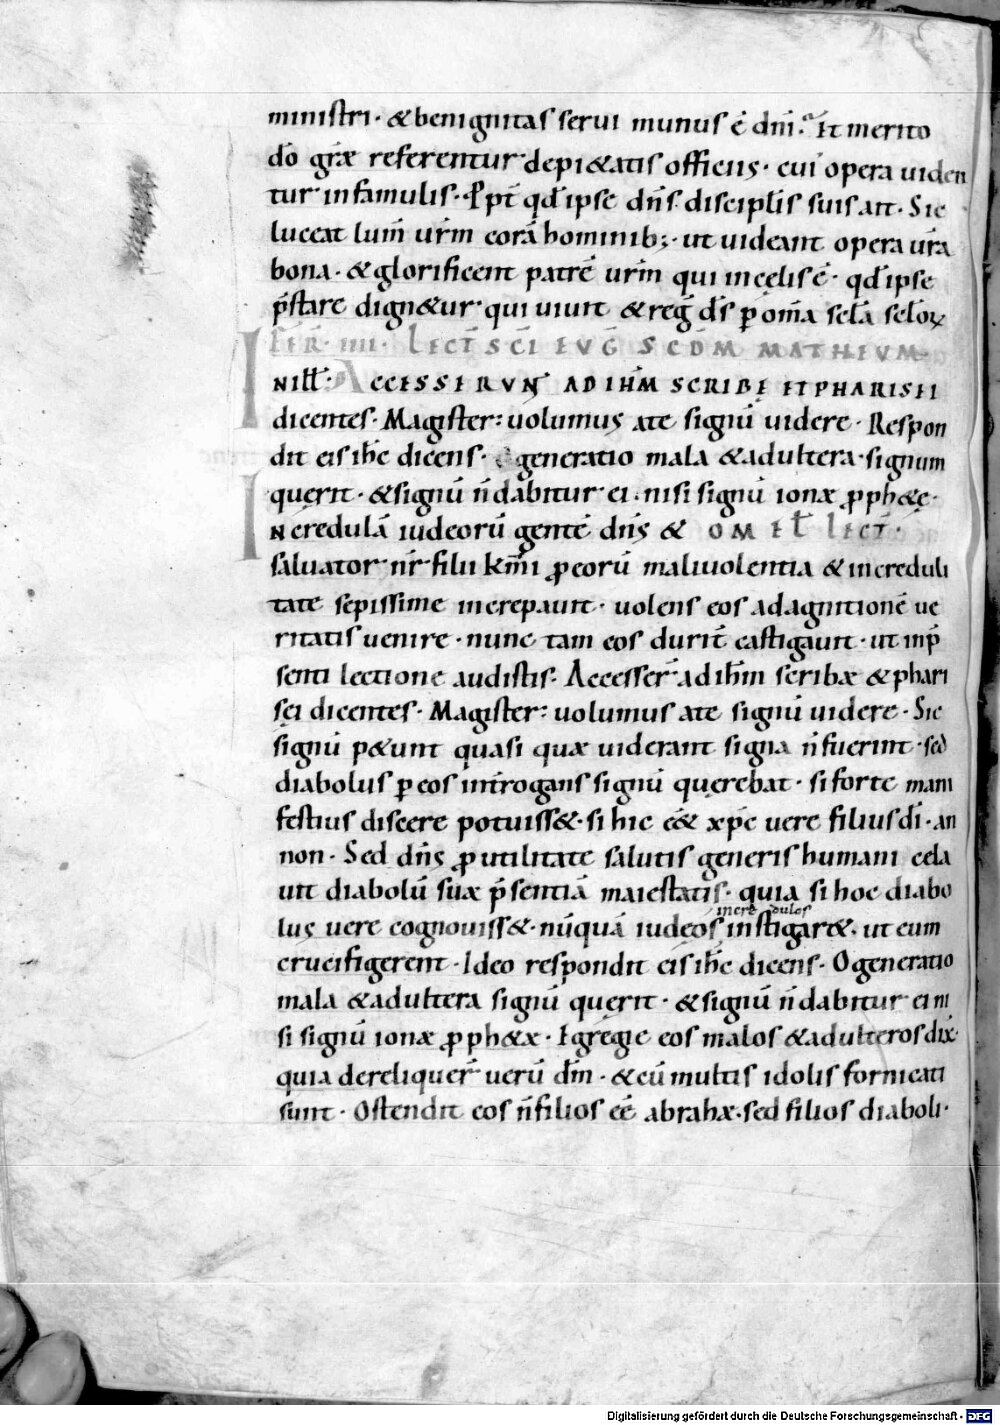 ministri · & benignitas serui munus ē dn̄i · Et merito
dō gr̄æ referentur de pi&atis officiis · cui opera uiden
tur in famulis · Ppt̄ qd̄ ipse dn̄s discipl̄is suis ait · Sic
luceat lum̄ ur̄m corā hominib; · ut uideant opera ur̄a
bona · & glorificent patrē ur̄m qui in cęlis ē · qd̄ ipse
p̄stare dign&ur · qui uiuit & reḡ d̄s p om̄a sc̄la sc̄loꝝ
FER · IIII · LECT̄ SC̄I EUḠ SCDM MATHEUM
IN ILL̄ · ACCESSERUN̄ AD IH̄M SCRIBĘ ET PHARISEI
dicentes · Magister : uolumus a te signū uidere · Respon
dit eis ih̄c dicens · generatio mala & adultera · signum
querit · & signū n̄ dabitur ei · nisi signū ionæ ꝓph&ę ·
INcredulā iudeorū gentē dn̄s & OMEL̄ LECT̄ ·
saluator nr̄ filii km̄i ꝓ eorū maliuolentia & increduli
tate sepissime increpauit · uolens eos ad agnitionē ue
ritatis uenire · nunc tam eos durit̄ castigauit · ut in p̄
senti lectione audistis · Accesser̄ ad ih̄m scribæ & phari
sęi dicentes · Magister : uolumus a te signū uidere · Sic
signū p&unt quasi quæ uiderant signa n̄ fuerint · sed
diabolus p eos int̄rogans signū querebat · si forte mani
festius discere potuiss& · si hic ē& xp̄c uere filius dī · an
non · Sed dn̄s ꝓ utilitate salutis generis humani cela
uit diabolū suæ p̄sentiā maiestatis · quia si hoc diabo
incredulos
lus uere cognouiss& · nūquā iudęos instigar& · ut eum
crucifigerent · Ideo respondit eis ih̄c dicens · O generatio
mala & adultera signū querit · & signū n̄ dabitur ei ni
si signū ionæ ꝓph&æ · Egregie eos malos & adulteros dix̄ ·
quia dereliquer̄ uerū dm̄ · & cū multis idolis fornicati
sunt · Ostendit eos n̄ filios eē abrahæ · sed filios diaboli ·
Digitalisierung gefördert durch die Deutsche Forschungsgemeinschaft - DFG